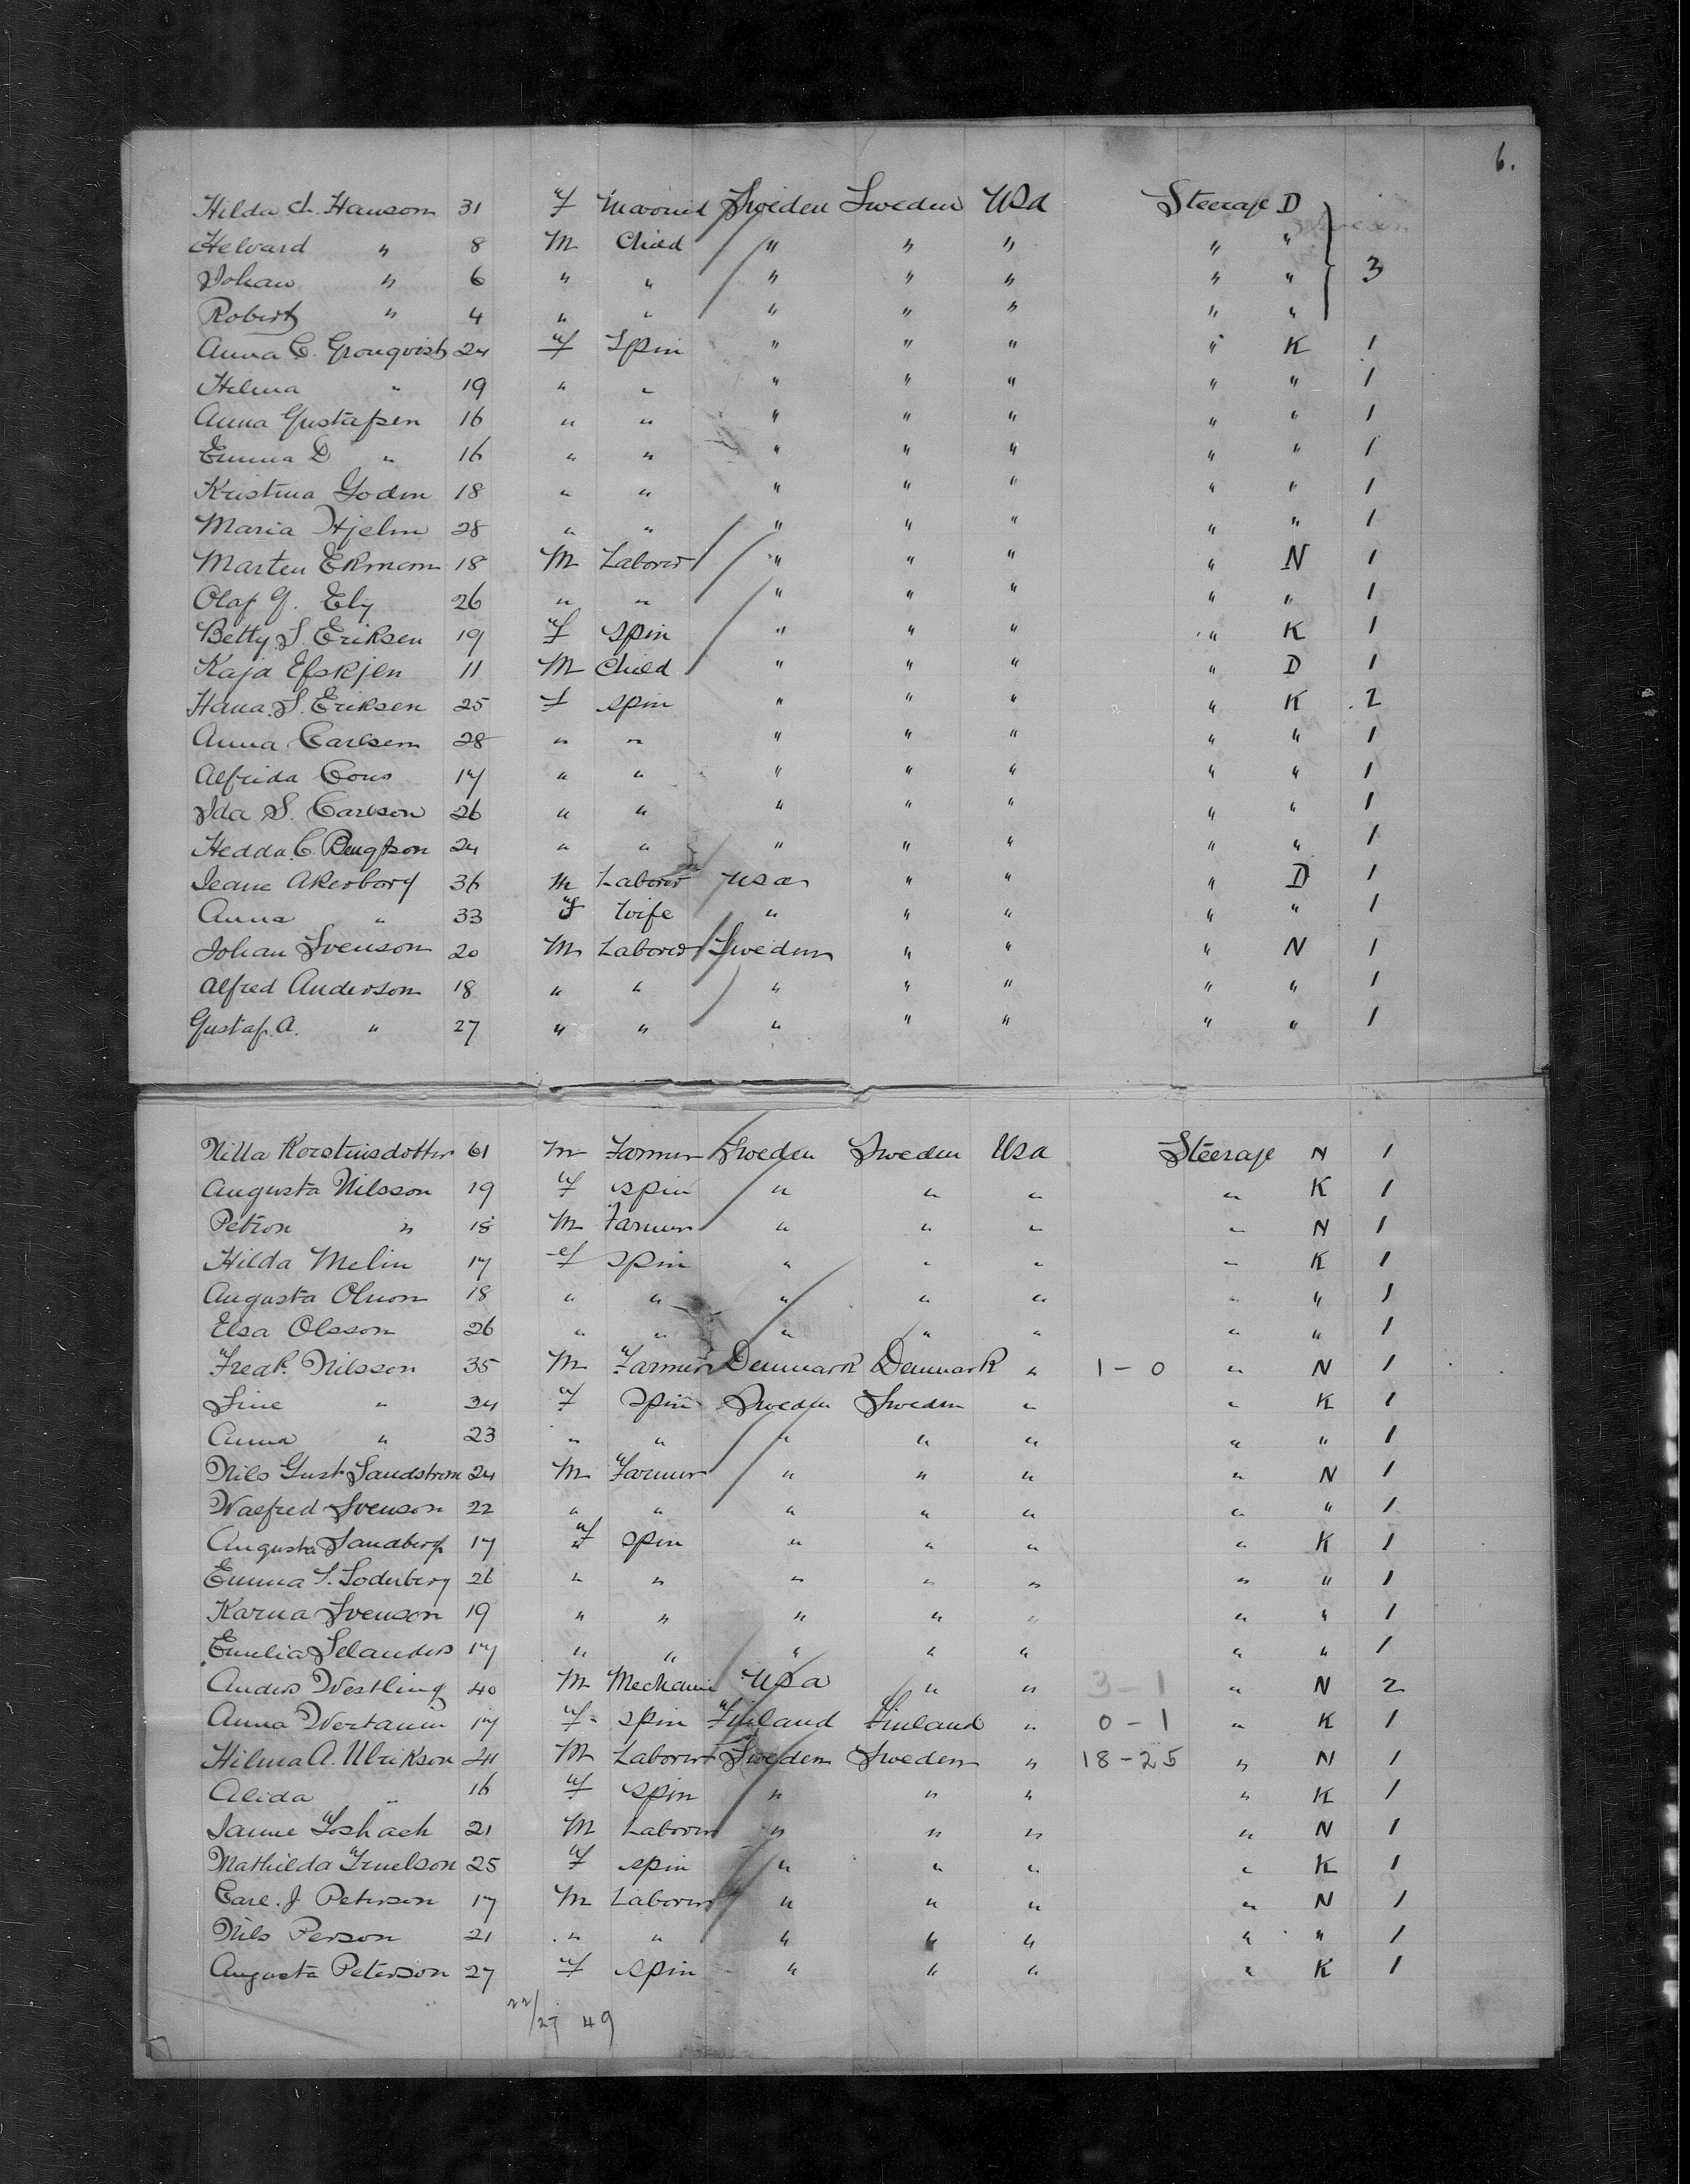 6.
Hilda Ch. Hanson 31 f Married Sweden Sweden USA Steerage D
Helvard " 8 M Child " " " " "
Johan " 6 " " " " " " " 3
Robert " 4 " " " " " " "
Anna C. Gronqvist 24 f Spin " " " " K 1
Helma " 19 " " " " " " " 1
Anna Gustafsen 16 " " " " " " " 1
Emma D " 16 " " " " " " " 1
Kristina Godin 18 " " " " " " " 1
Maria Hjelm 28 " " " " " " " 1
Marten Ekman 18 M Laborer " " " " N 1
Olaf G. Ely 26 " " " " " " " 1
Betty S. Eriksen 19 f Spin " " " " K 1
Kaja Efskjen 11 M Child " " " " D 1
Hana S. Eriksen 25 f spin " " " " K 2
Anna Carlsen 28 " " " " " " " 1
Alfrida Cous 17 " " " " " " " 1
Ida S. Carlson 26 " " " " " " " 1
Hedda C. Bengtson 24 " " " " " " " 1
Jeane Akerborg 36 M Laborer USA " " " D 1
Anna " 33 f Wife " " " " " 1
Johan Svenson 20 M Laborer Sweden " " " N 1
Alfred Anderson 18 " " " " " " " 1
Gustaf. A. " 27 " " " " " " " 1
Nilla Korstinsdotter 61 m Farmer Sweden Sweden USA Steerage N 1
Augusta Nilsson 19 f spin " " " " K 1
Petron " 18 M Farmer " " " " N 1
Hilda Melin 17 f spin " " " " K 1
Augusta Olson 18 " " " " " " " 1
Elsa Olsson 26 " " " " " " " 1
Fredk. Nilsson 35 M Farmer Denmark Denmark " 1-0 " N 1
Sine " 24 f Spin Sweden Sweden " " K 1
Anna " 23 " " " " " " " 1
Nils Gust Sandstrom 24 M Farmer " " " " N 1
Walfred Svenson 22 " " " " " " " 1
Augusta Sandberg 17 f spin " " " " K 1
Emma S. Soderberg 26 " " " " " " " 1
Karna Svenson 19 " " " " " " " 1
Emelia Selanders 17 " " " " " " " 1
Anders Westling 40 M Mechanic USA " " 3-1 " N 2
Anna Wertanin 17 f spin Finland Finland " 0-1 " K 1
Hilma A. Ulrikson 24 M Laborer Sweden Sweden " 18-25 " N 1
Alida " 16 f spin " " " " K 1
Janne Foshach 21 M Laborer " " " " N 1
Mathilda Fruelson 25 f spin " " " " K 1
Carl. J Peterson 17 M Laborer " " " " N 1
Nils Person 21 " " " " " " " 1
Augusta Peterson 27 f spin " " " " K 1
22/27 49